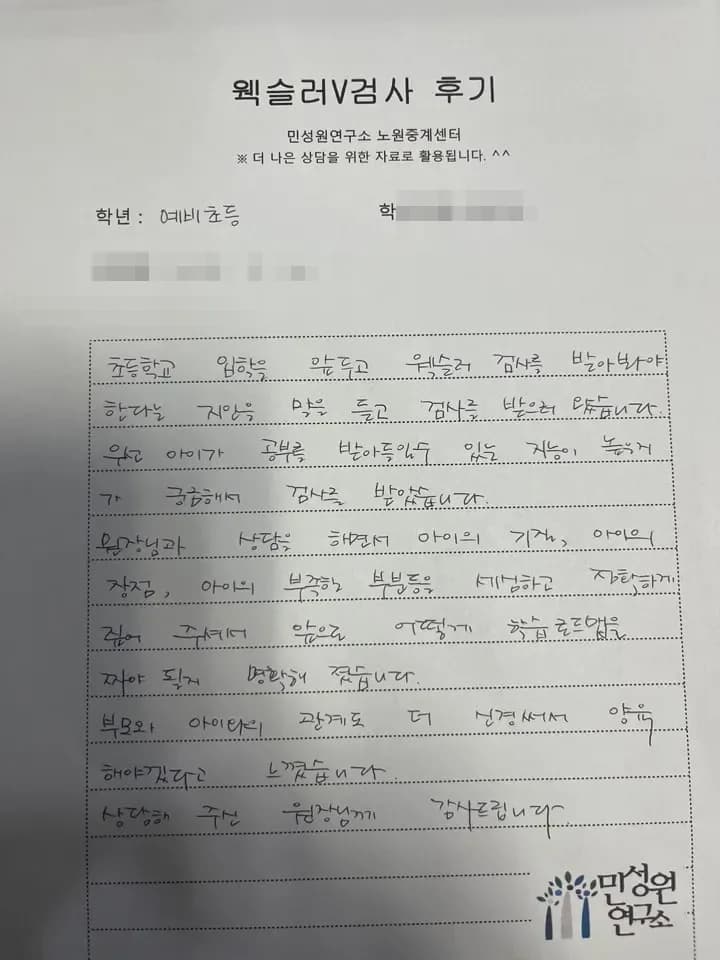 웩슬러V검사 후기
민성원연구소 노원중계센터
※ 더 나은 상담을 위한 자료로 활용됩니다. ^^
학년 : 예비초등
학
초등학교 입학을 앞두고 웩슬러 검사를 받아봐야
한다는 지인을 말을 듣고 검사를 받으러 왔습니다.
우선 아이가 공부를 받아들일수 있는 지능이 높은지
가 궁금해서 검사를 받았습니다.
원장님과 상담을 해면서 아이의 기질, 아이의
장점, 아이의 부족한 부분들을 세심하고 정확하게
집어 주셔서 앞으로 어떻게 학습로드맵을
짜야 될지 명확해 졌습니다.
부모와 아이와의 관계도 더 신경써서 양육
해야겠다고 느꼈습니다.
상담해 주신 원장님께 감사드립니다
민성원
연구소